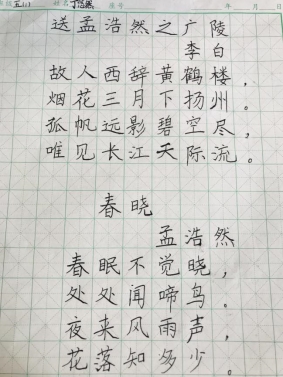 五(1) 姓名 座号 年 月 日
送孟浩然之广陵
李白
故人西辞黄鹤楼，
烟花三月下扬州。
孤帆远影碧空尽，
唯见长江天际流。
春晓
孟浩然
春眠不觉晓，
处处闻啼鸟。
夜来风雨声，
花落知多少。